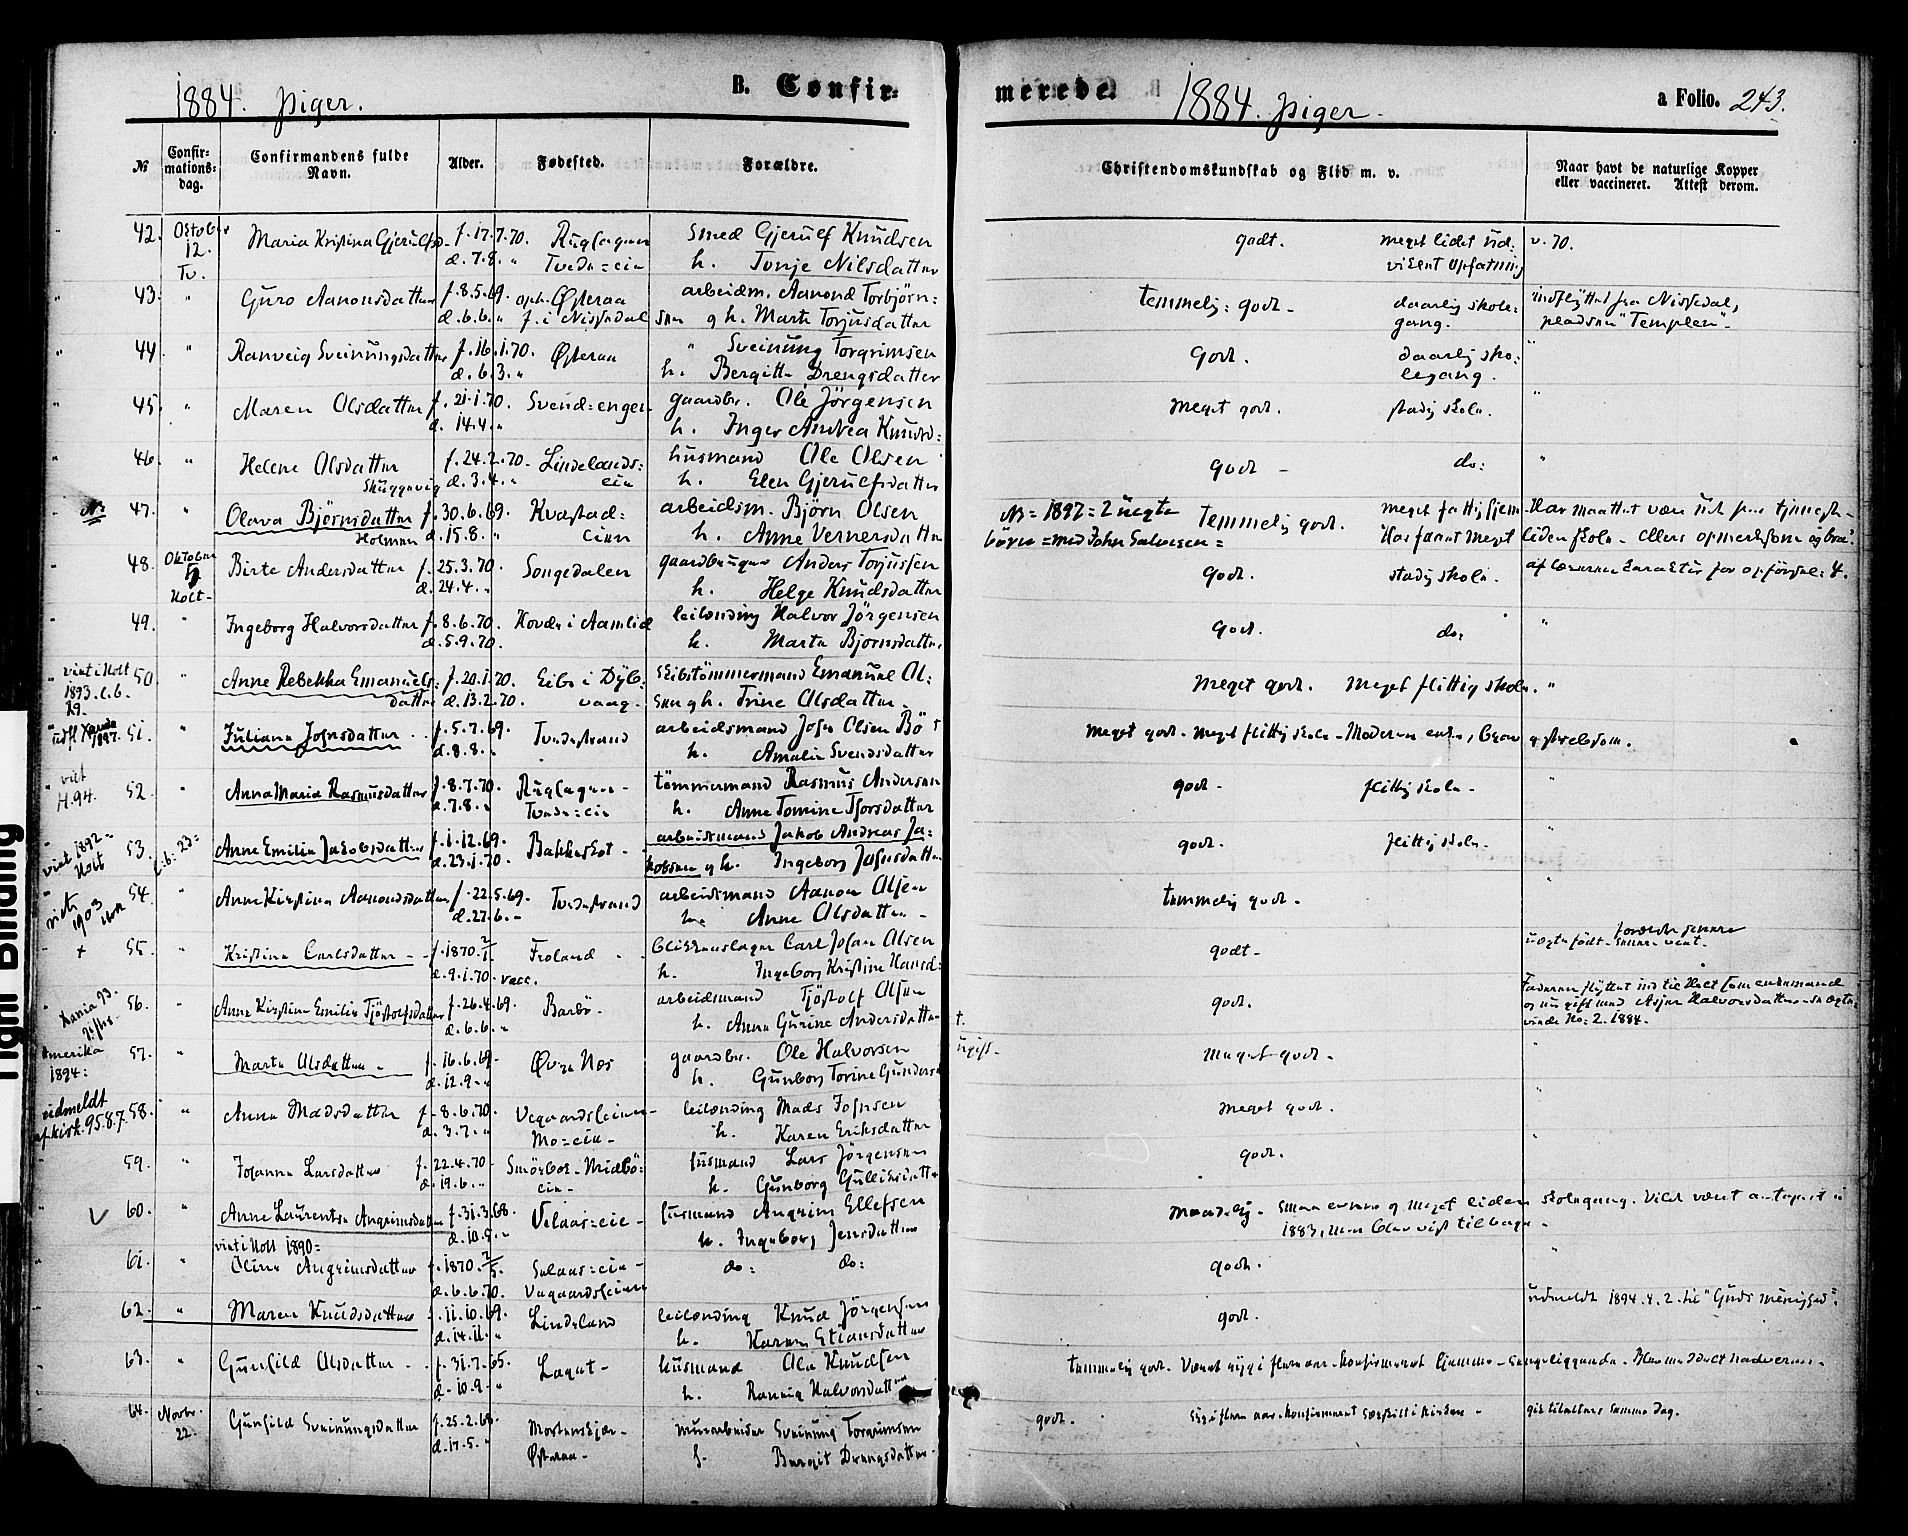 1884. piger.
B. Confir=
№
Confir=
mations=
dag.
Confirmandens fulde
Navn.
Alder.
Fødested.
Forældre.
42.
Oktober
12.
Tv.
Maria Kristina Gjerulfsd.
f. 17.7.70.
d. 7.8. "
Smed Gjerulf Knudsen
h. Tonje Nilsdatter
43.
"
Guro Aanonsdatter
f. 8.5.69.
d. 6.6. "
oph. Østeraa
f. i Nissedal
arbeidm. Aanond Torbjørn=
sen og h. Marte Torjusdatter
44
"
Ranveig Sveinungsdatter
f. 16.1.70.
d. 6.3. "
Østeraa
" Sveinung Torgrimsen
h. Bergitte Drengsdatter
45.
"
Maren Olsdatter
f. 21.1.70.
d. 14.4. "
Svend=engen
gaardbr. Ole Jörgensen
h. Inger Andrea Knudsd=
46.
"
Helene Olsdatter
f. 24.2.70.
d. 3.4. "
Lindelands=
eie
husmand Ole Olsen
h. Elen Gjerulfsdatter
47.
"
Olava Björnsdatter
Holmen
f. 30.6.69.
d. 15.8. "
Kvastad=
eien
arbeidsm. Björn Olsen
h. Anne Vernersdatter
48.
Oktober
5
Holt-
Birte Andersdatter
f. 25.3.70.
d. 24.4. "
Songedalen
gaardbruger Anders Torjussen
h. Helge Knudsdatter
49.
"
Ingeborg Halvorsdatter
f. 8.6.70.
d. 5.9.70.
Hovde i Aamlid
leilending Halvor Jörgensen
h. Marte Bjornsdatter
viet i Holt
1893. C.b.
29.
50
"
Anne Rebekka Emanuels=
datter
f. 20.1.70.
d. 13.2.70.
Eibo i Dyb=
vaag.
skibstömmermand Emanuel Ol=
sen og h. Trine Olsdatter.
1897.
51.
"
Juliane Johnsdatter
f. 5.7.69.
d. 8.8. "
Tvedestrand
arbeidsmand John Olsen Bö †
h. Amalie Svendsdatter
viet
H. 94.
52.
"
Anna Maria Rasmusdatter
f. 8.7.70.
d. 7.8. "
Tvede=eie
tömmermand Rasmus Andersen
h. Anne Tomine Tjorsdatter
viet 1892-
Holt
53.
C.b. 23=
Anne Emilie Jakobsdatter
f. 1.12.69.
d. 23.1.70.
Bakkeskot
arbeidsmand Jakob Andreas Ja=
kobsen og h. Ingeborg Johnsdatter
viet
1903
54.
"
Anne Kirstine Aanondsdatter
f. 22.5.69.
d. 27.6. "
Tvedestrand
arbeidsmand Aanon Olsen
h. Anne Olsdatter
+
55.
"
Kristine Carlsdatter
f. 1870. 2/1
d. 9.1.70.
Froland
vacc.
Blikkenslager Carl Johan Olsen
h. Ingeborg Kristine Hansd=
56.
"
Anne Kirstine Emilie Tjöstolfsdatter
f. 26.4.69.
d. 6.6. "
Barbö.
arbeidsmand Tjöstolf Olsen
h. Anne Gurine Andersdatter
Amerika
1894:
57.
"
Marta Olsdatter
f. 16.6.69.
d. 12.9. "
Øvre Næs
gaardbr. Ole Halvorsen
h. Gunborg Torine Gunders
t.
ugift.
udmeldt
af kirk. 95.8.7.
58.
"
Anna Madsdatter
f. 8.6.70.
d. 3.7. "
Mo=eie
leilending Mads Johnsen
h. Karen Eriksdatter
59.
"
Johanne Larsdatter
f. 22.4.70.
d. 19.6. "
Midbö=
eie
husmand Lars Jörgensen
h. Gunborg
✓
60.
"
Anne Laurentse Angrimsdatter
f. 31.3.68.
d. 10.5. "
viet i Holt 1890=
husmand Angrim Ellefsen
h. Ingeborg Jensdatter
61.
"
Oline Angrimsdatter
f. 1870. 2/5.
d. 6.6.70.
do: do:
62.
"
Maren Knudsdatter
f. 11.10.69.
d. 14.11. "
Lindeland
leilending Knud Jörgensen
h. Karen Stiansdatter
63.
"
Gunhild Olsdatter
f. 31.7.65.
d. 10.9. "
Lagat
husmand Ole Knudsen
h. Ranveig Halvorsdatter
64.
Novbr.
22.
Gunhild Sveinungsdatter
f. 25.2.68.
d. 17.5. "
Østeraa
murarbeider Sveinung Torgrimsen
h. Bergit Drengsdatter
merede.
1884. piger.
a Folio. 243.
Christendomskundskab og Flid m. v.
Naar havt de naturlige Kopper
eller vaccineret. Attest derom.
godt.
meget lidet ud=
viklet opfatning
v. 70.
temmelig godt
daarlig skole=
gang.
indflyttet fra Nissedal,
pladsen "Templen".
Godt.
daarlig sko=
legang.
"
Meget godt.
stadig skole.
"
godt
do:
"
NB= 1897= 2 uegte
börn = med John Salvesen=
temmelig godt.
meget fattig hjem. Har maattet være ude paa tjeneste-
Har faaet meget liden skole - Ellers opmerksom og bra.
Godt.
stadig skole.
af læreren karakter for opförsel: 4.
Godt.
do:
"
Meget godt. Meget flittig skole.
"
Meget godt. Meget flittig skole - Moderen enke, brav og strebsom.
godt
flittig skole
"
godt.
flittig skole.
"
temmelig godt.
"
godt
uægte födt. forældrene senere viet.
godt.
Faderen flyttet ind til Holt som enkemand
og nu gift med Asjer Halvorsdatter
vide No: 2. 1884.
Meget godt.
"
Meget godt.
"
godt.
"
Maadelig. Smaa evner og meget liden skolegang. Vilde været antaget i
1883, men blev vist tilbage.
godt.
"
godt.
udmeldt 1894.4.2. til "Guds Menighed".
temmelig godt. Været syg i flere aar. konfirmeret hjemme - sengeliggende.
godt.
Syg i flere aar. konfirmeret særskilt i kirken.
gik til alters samme dag.
Tight Binding